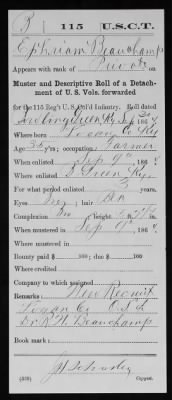 B | 115 | U.S.C.T.
Ephriam Beauchamp
Appears with rank of Private on
Muster and Descriptive Roll of a Detachment
of U. S. Vols. forwarded
for the 115 Reg't U.S. Col'd Infantry. Roll dated
Bowling Green Ky Sep 30, 186
Where born Logan Co Ky
Age y'rs; occupation Farmer
When enlisted Sep 9", 186
Where enlisted B Green Ky
For what period enlisted 3 years.
Eyes ; hair Blk
Complexion ; height ft. in.
When mustered in Sep 9", 186
Where mustered in
Bounty paid $ 100; due $ 100
Where credited
Company to which assigned
Remarks: New Recruit
Logan Co
Dr R H Beauchamp
Book mark:
(339) Copyist.